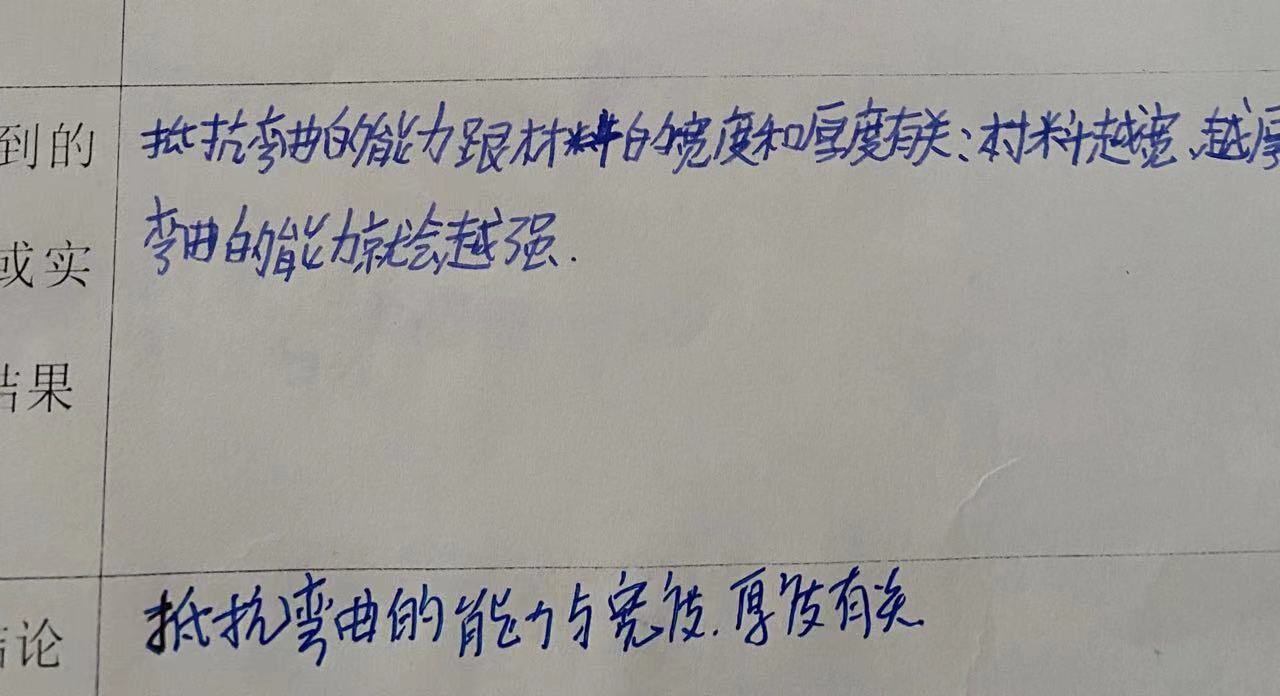 到的
抵抗弯曲的能力跟材料的宽度和厚度有关:材料越宽、越厚
或实
弯曲的能力就会越强.
结果
结论
抵抗弯曲的能力与宽度.厚度有关